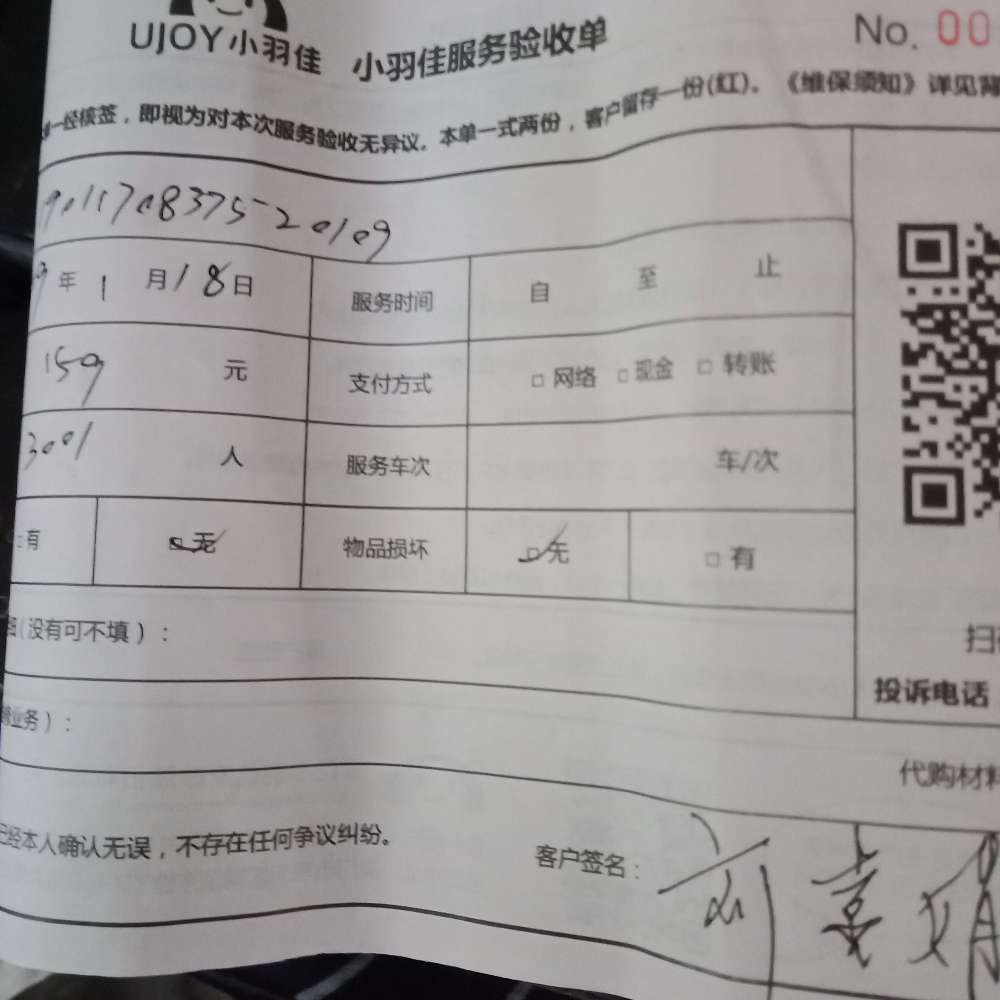 UJOY小羽佳 小羽佳服务验收单 No. 00
一经核签，即视为对本次服务验收无异议。本单一式两份，客户留存一份(红)。《维保须知》详见背
9011708375520109
9年1月18日 服务时间 自 至 止
159 元 支付方式 □ 网络 □ 现金 □ 转账
3001 人 服务车次 车/次
□有 □无 物品损坏 □无 □ 有
(没有可不填)：
扫
投诉电话
业务)：
代购材料
已经本人确认无误，不存在任何争议纠纷。
客户签名：